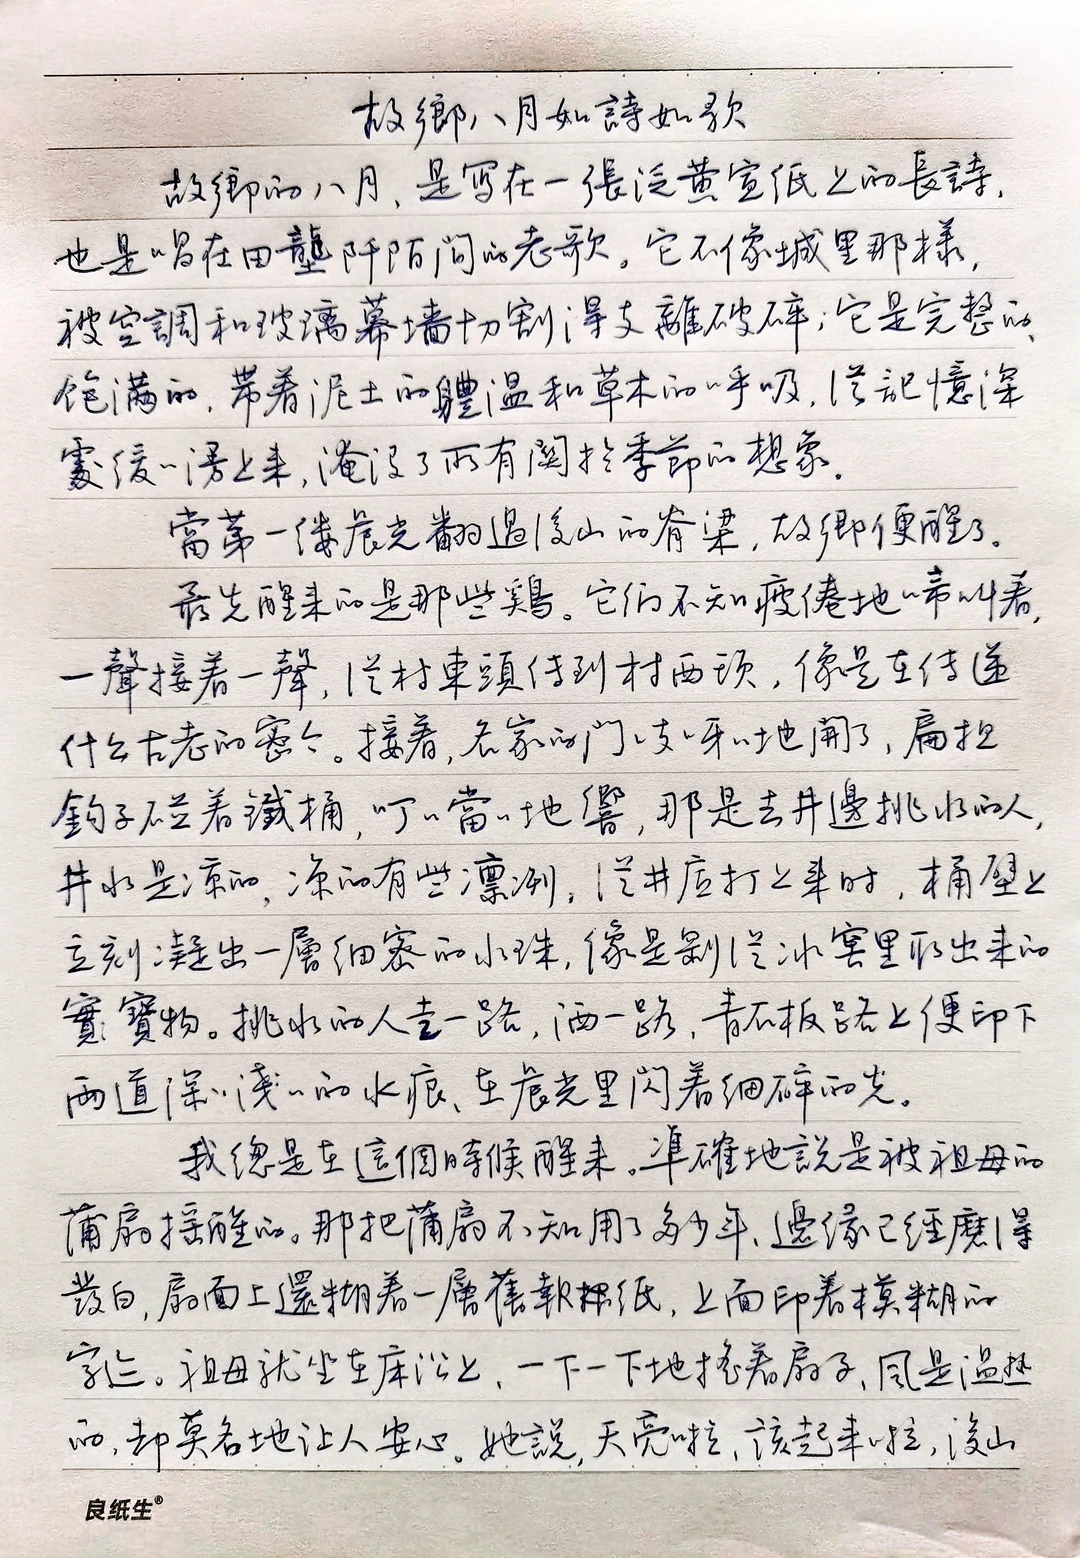 故鄉八月如詩如歌
故鄉的八月、是写在一張泛黄宣纸上的長詩，
也是唱在田壟阡陌间的老歌。它不像城里那樣，
被空調和玻璃幕墙切割得支離破碎；它是完整的、
饱满的，带着泥土的軆温和草木的呼吸，從記憶深
處缓〻漫上来，淹没了所有關於季節的想象。
當第一缕晨光翻過後山的脊梁，故鄉便醒了。
最先醒来的是那些鷄。它们不知疲倦地啼叫着，
一聲接着一聲，從村東頭传到村西頭，像是在传递
什么古老的密令。接着，各家的門吱〻呀〻地開了，扁担
鈎子碰着鐵桶，叮〻當〻地響，那是去井邊挑水的人，
井水是凉的，凉的有些凛冽。從井底打上来时，桶壁上
立刻凝出一層细密的水珠，像是剛從冰窖里取出来的
實寶物。挑水的人走一路，洒一路，青石板路上便印下
两道深〻淺〻的水痕、在晨光里閃着细碎的光。
我總是在這個時候醒来。準確地説是被祖母的
蒲扇摇醒的。那把蒲扇不知用了多少年、邊缘已經磨得
發白，扇面上還糊着一層舊報纸，上面印着模糊的
字迹。祖母就坐在床沿上、一下一下地摇着扇子，風是温热
的，却莫名地让人安心。她説，天亮啦，该起来啦，後山
良纸生®